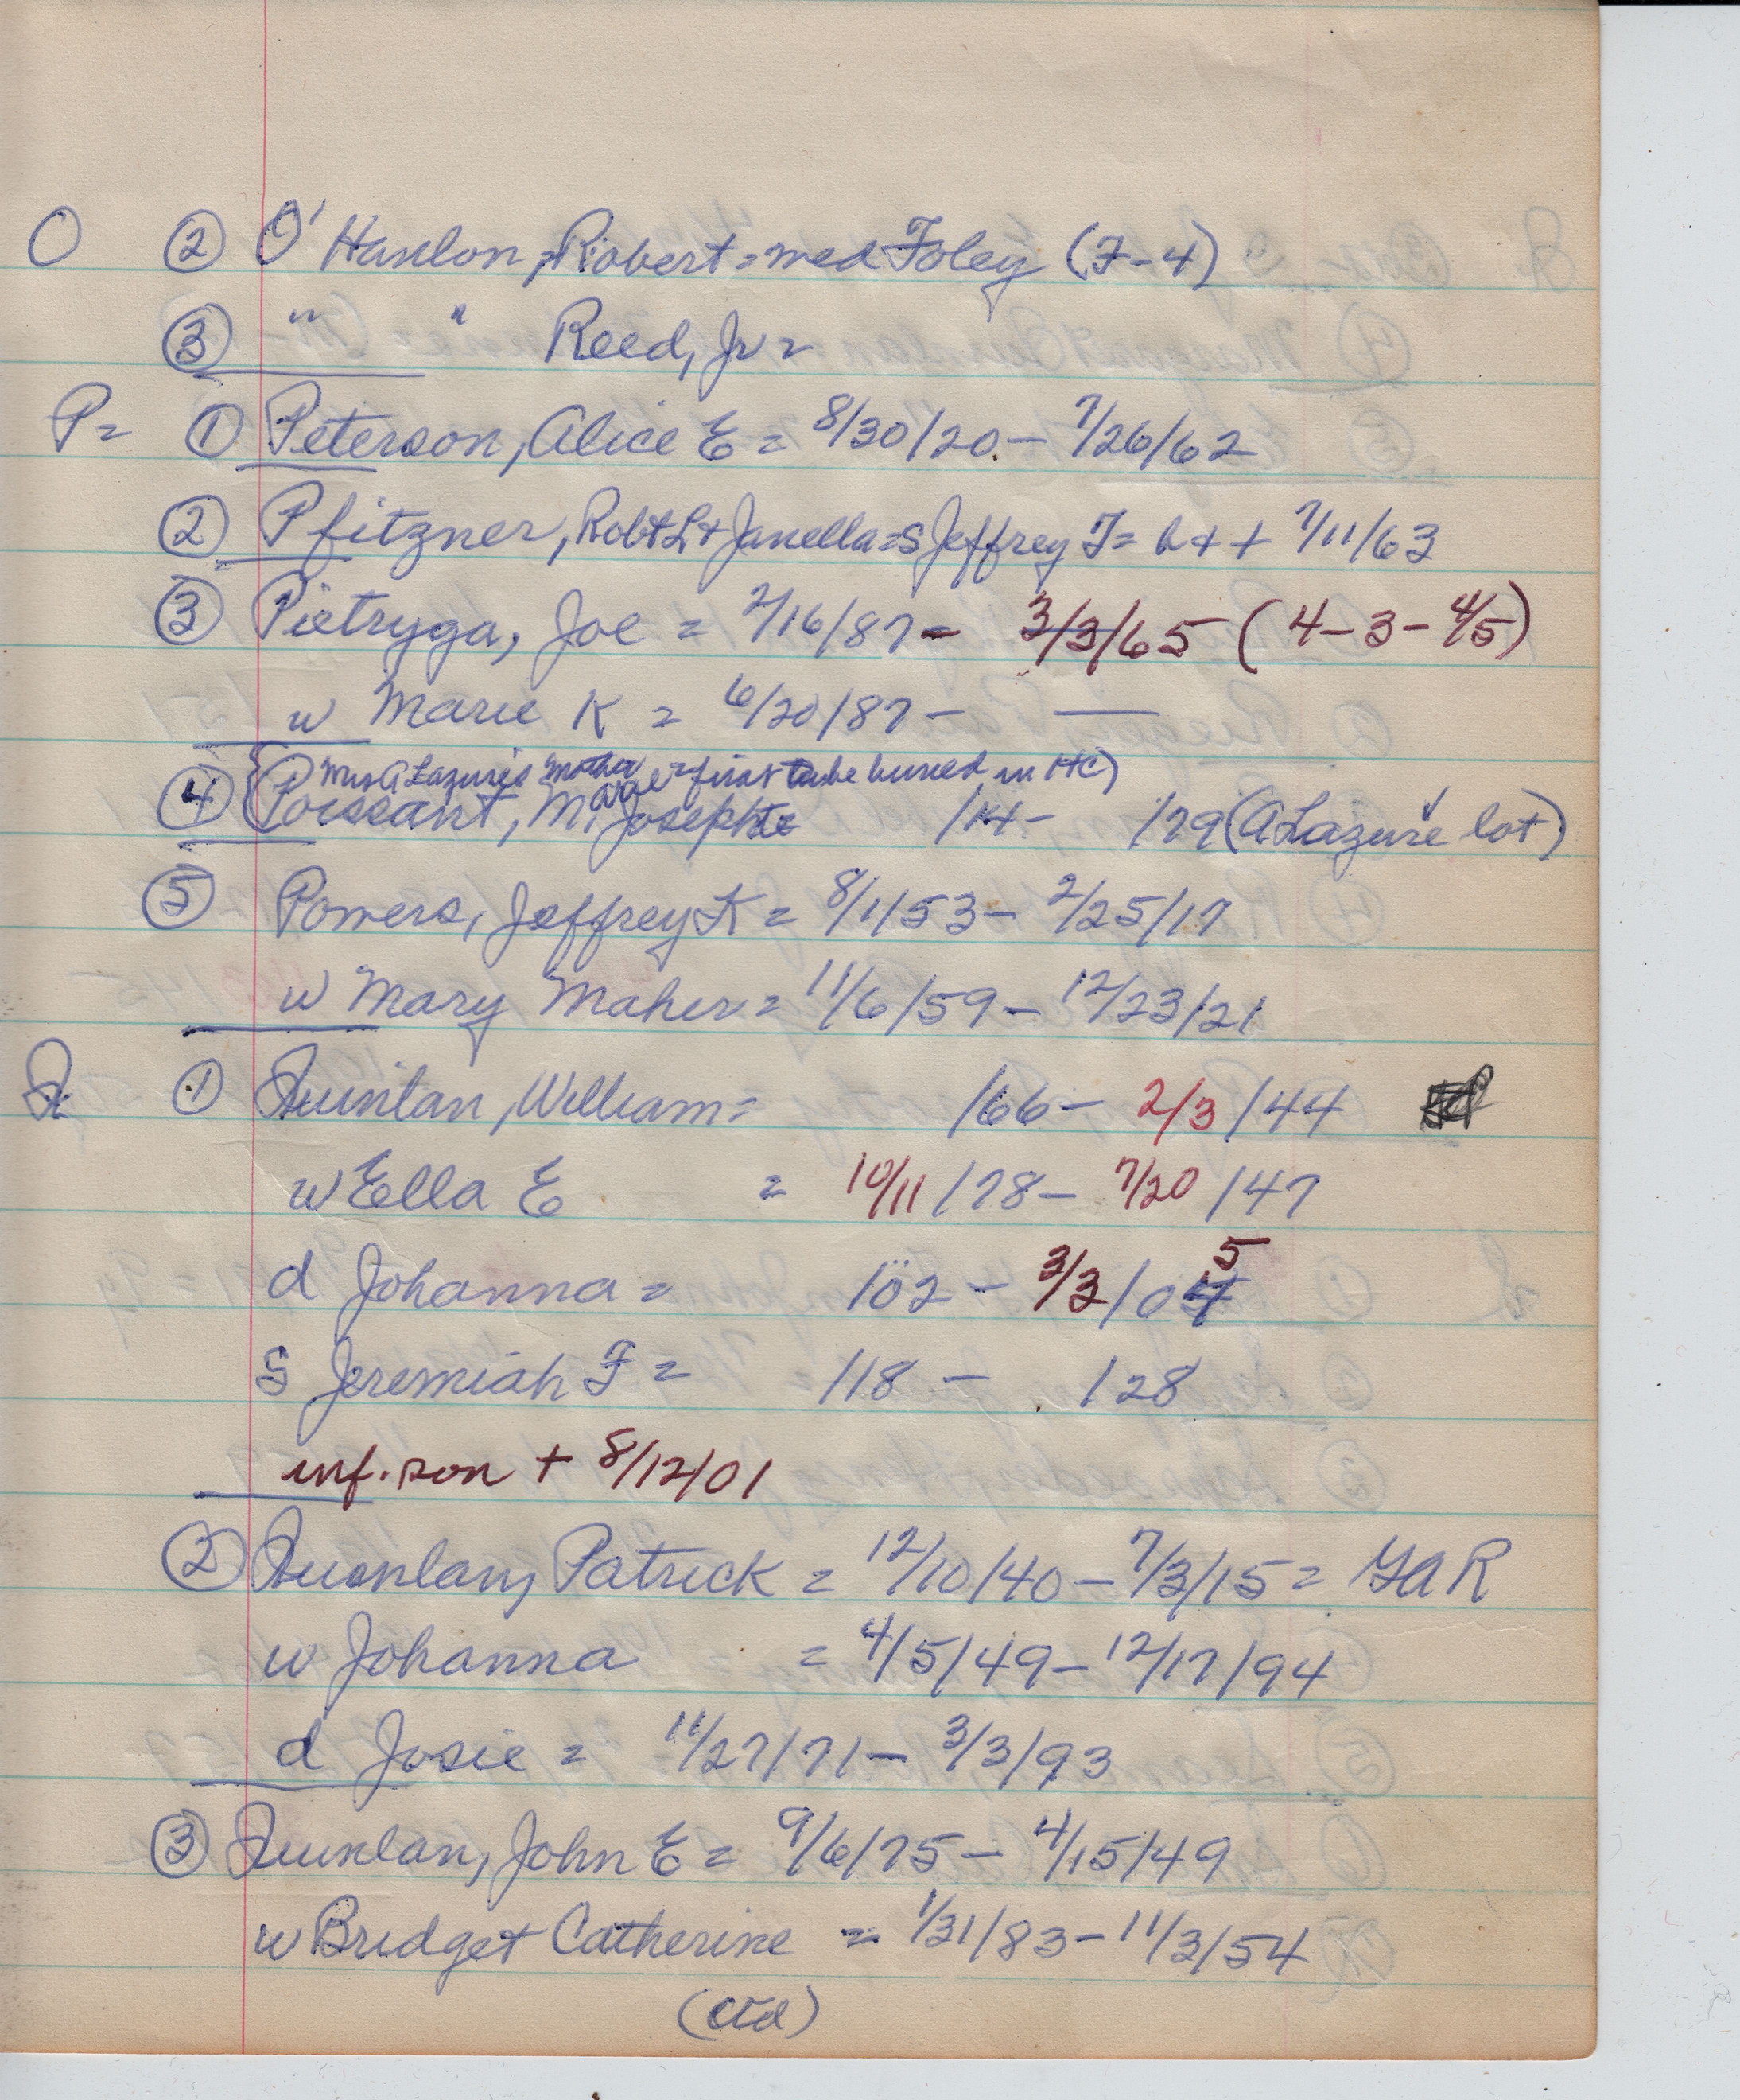 O ② O'Hanlon, Robert = med Foley (F-4)
③ " " Reed, Jr =
P= ① Peterson, Alice E = 8/30/20 - 7/26/62
② Pfitzner, Robt L + Janella = s Jeffrey F = b + + 7/11/63
③ Pietryga, Joe = 2/16/87 - 3/3/65 (4-3-4/5)
w Marie K = 6/20/87 - —
(Mrs A Lazure's mother = first to be buried in HC)
④ Poissant, M. Josephte /14- /79 (A Lazure lot)
⑤ Powers, Jeffrey K = 8/1/53 - 2/25/17
w Mary Maher = 11/6/59 - 12/23/21
Q ① Quinlan, William = /66 - 2/3/44
w Ella E = 10/11/78 - 7/20/47
d Johanna = /02 - 3/3/04 5
s Jeremiah F = /18 - /28
inf. son + 8/12/01
② Quinlan, Patrick = 12/10/40 - 7/3/15 = GAR
w Johanna = 4/5/49 - 12/17/94
d Josie = 11/27/71 - 3/3/93
③ Quinlan, John E = 9/6/75 - 4/15/49
w Bridget Catherine = 1/31/83 - 11/3/54
(ctd)